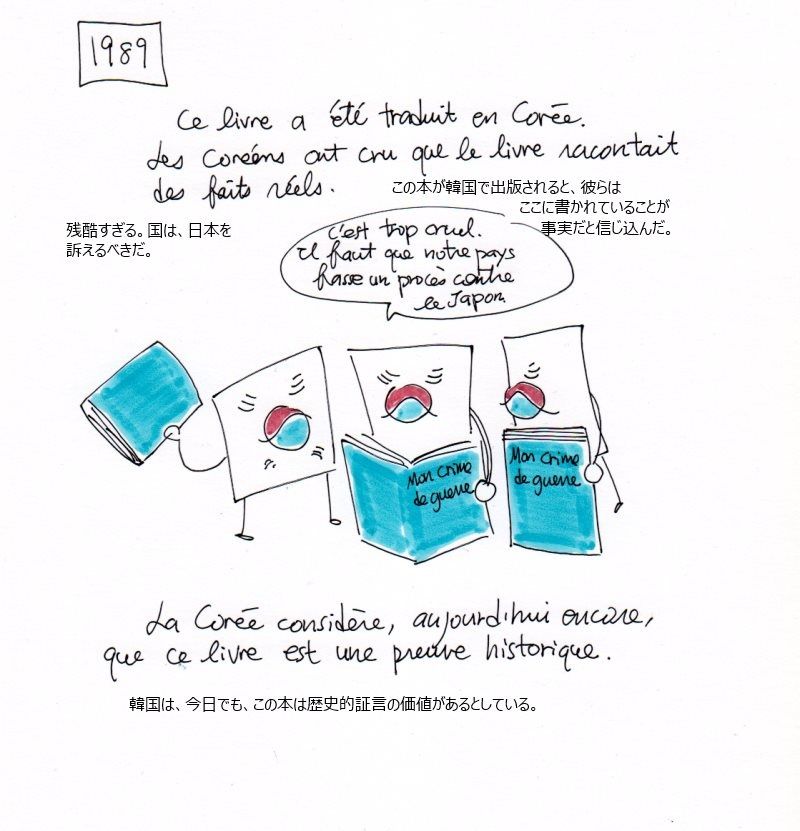 1989
Ce livre a été traduit en Corée.
Les Coréens ont cru que le livre racontait
des faits réels.
この本が韓国で出版されると、彼らは
ここに書かれていることが
事実だと信じ込んだ。
残酷すぎる。国は、日本を
訴えるべきだ。
c'est trop cruel.
il faut que notre pays
fasse un procès contre
le Japon
Mon crime
de guerre
Mon crime
de guerre
La Corée considère, aujourd'hui encore,
que ce livre est une preuve historique.
韓国は、今日でも、この本は歴史的証言の価値があるとしている。